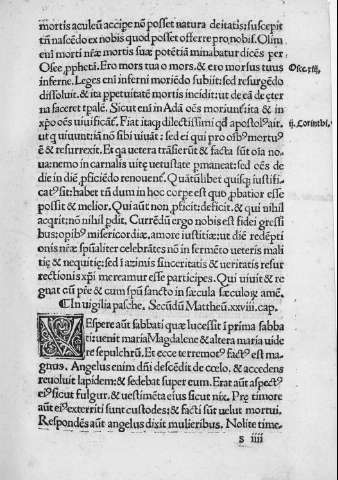 mortis aculeū accipe nō posset natura deitatis: suscepit
tn̄ nascēdo ex nobis quod posset offerre pro nobis. Olim
eni mortis suæ potētiā minabatur dicēs per
Osee, ꝓphetā. Ero mors tua o mors, & ero morsus tuus
Osee.xiij.
inferne. Leges eni inferni moriēdo subiit: sed resurgēdo
dissoluit. & ita ppetuitatē mortis incidit: ut de eā de ęter
na faceret tꝑalē. Sicut eni in Adā oēs moriunt̄: ita & in
xp̄o oēs uiuificāt. Fiat itaqꝫ dilectissimi qđ apostolꝰ ait.
ij. Corinth.
ut q uiuunt: iā nō sibi uiuāt: sed ei qui pro oībꝰ mortuꝰ
ē & resurrexit. Et qa uetera trāsierūt & facta sūt oīa no-
ua: nemo in carnalis uitę uetustate ꝑmaneat: sed oēs de
die in diē ꝓficiēdo renouent̄. Quātūlibet quisqꝫ iustifi-
catꝰ sit: habet tn̄ dum in hoc corpe est quo ꝓbatior esse
possit & melior. Qui aūt non ꝓficit: deficit. & qui nihil
acqrit: nō nihil ꝑdit. Currēdū ergo nobis est fidei gressi
bus: opibꝰ misericordiæ. amore iustitiæ: ut diē redēpti
onis nræ spūaliter celebrātes nō in fermēto ueteris mali
tię & neqtię: sed i azimis sinceritatis & ueritatis resur
rectionis xp̄i mereamur esse participes. Qui uiuit & re
gnat cū pr̄e & cum spū sancto in sæcula sæculoꝝ amē.
¶In uigilia pasche. Secūdū Mattheū.xxviii.cap.
VEspere aūt sabbati quæ lucessit i prima sabba
ti: uenit maria Magdalene & altera maria uide
re sepulchrū. Et ecce terremotꝰ factꝰ est ma-
gnus. Angelus enim dn̄i descēdit de cœlo. & accedens
reuoluit lapidem: & sedebat super eum. Erat aūt aspectꝰ
eiꝰ sicut fulgur. & uestimēta eius sicut nix. Prę timore
aūt eiꝰ exterriti sunt custodes: & facti sūt uelut mortui.
Respondēs aūt angelus dixit mulieribus. Nolite time-
s iiii